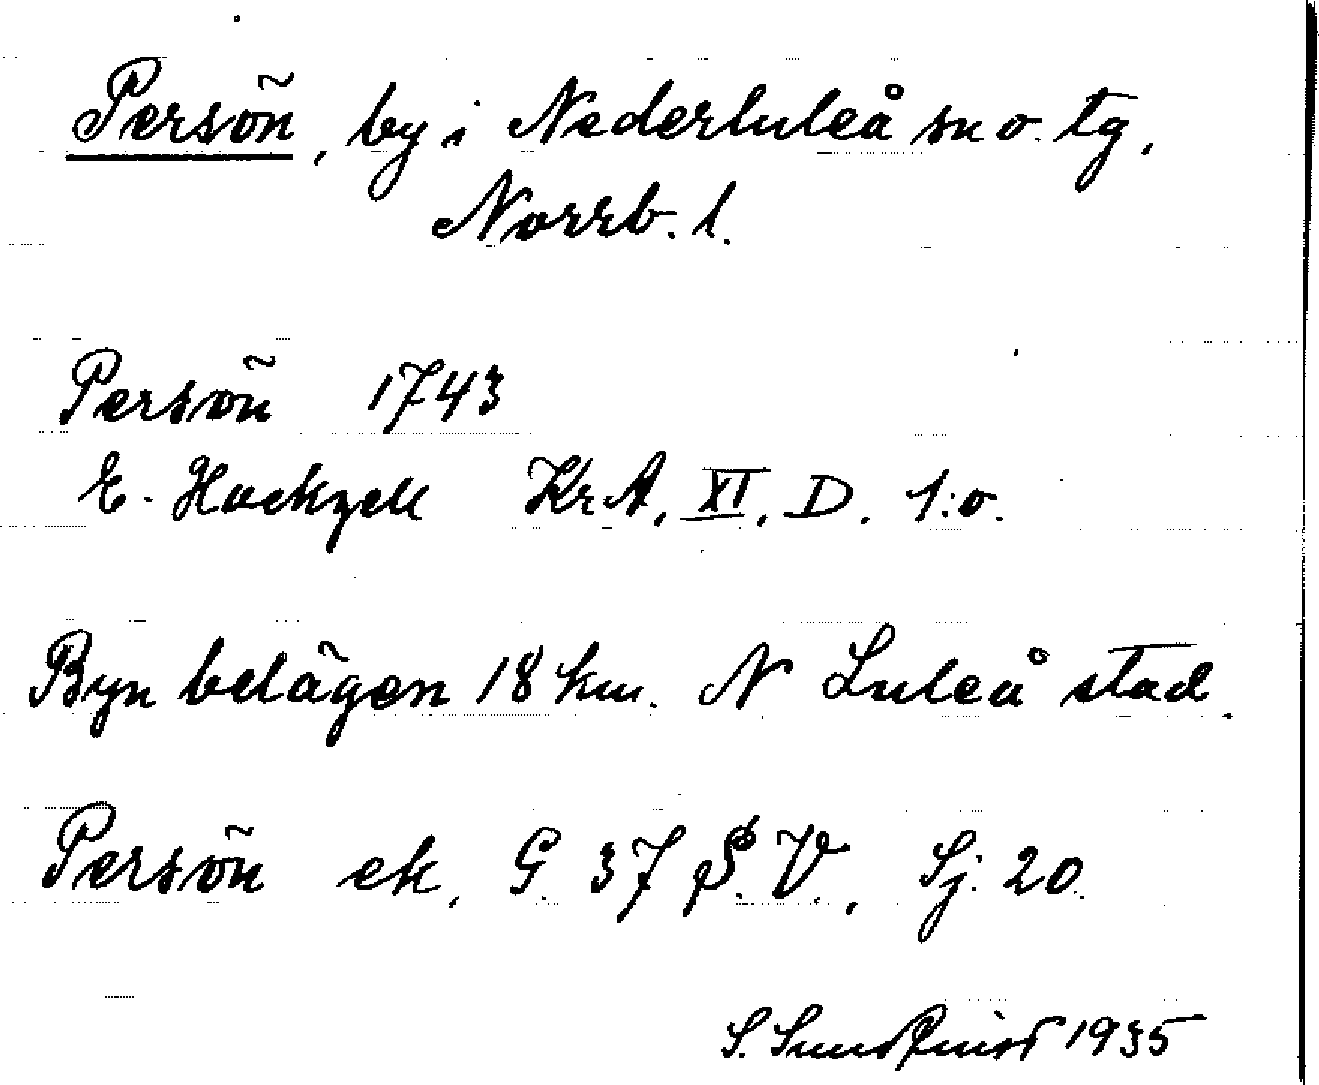 Persön, by i Nederluleå sn o. tg,
Norrb. l.
Persön 1743
E. Hackzell KrA, XI, D. 1:o.
Byn belägen 18 km. N Luleå stad.
Persön ek, G. 37 S. V., Sj. 20.
S. Sundquist 1935